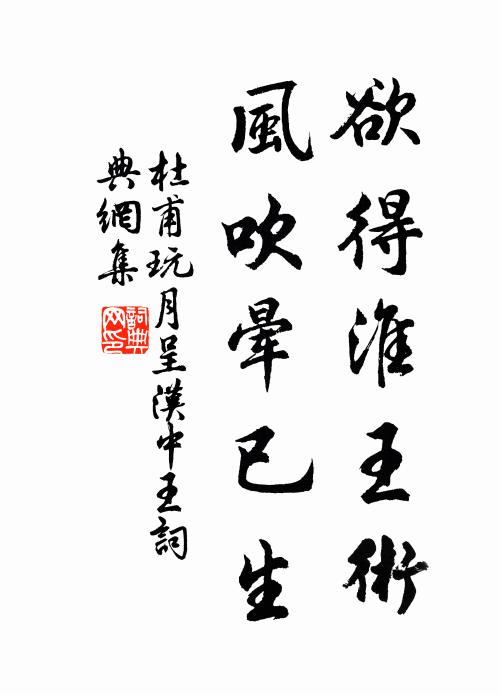 欲得淮王術
風吹暈已生
杜甫玩月呈漢中王詞
典網集
詞典
网印